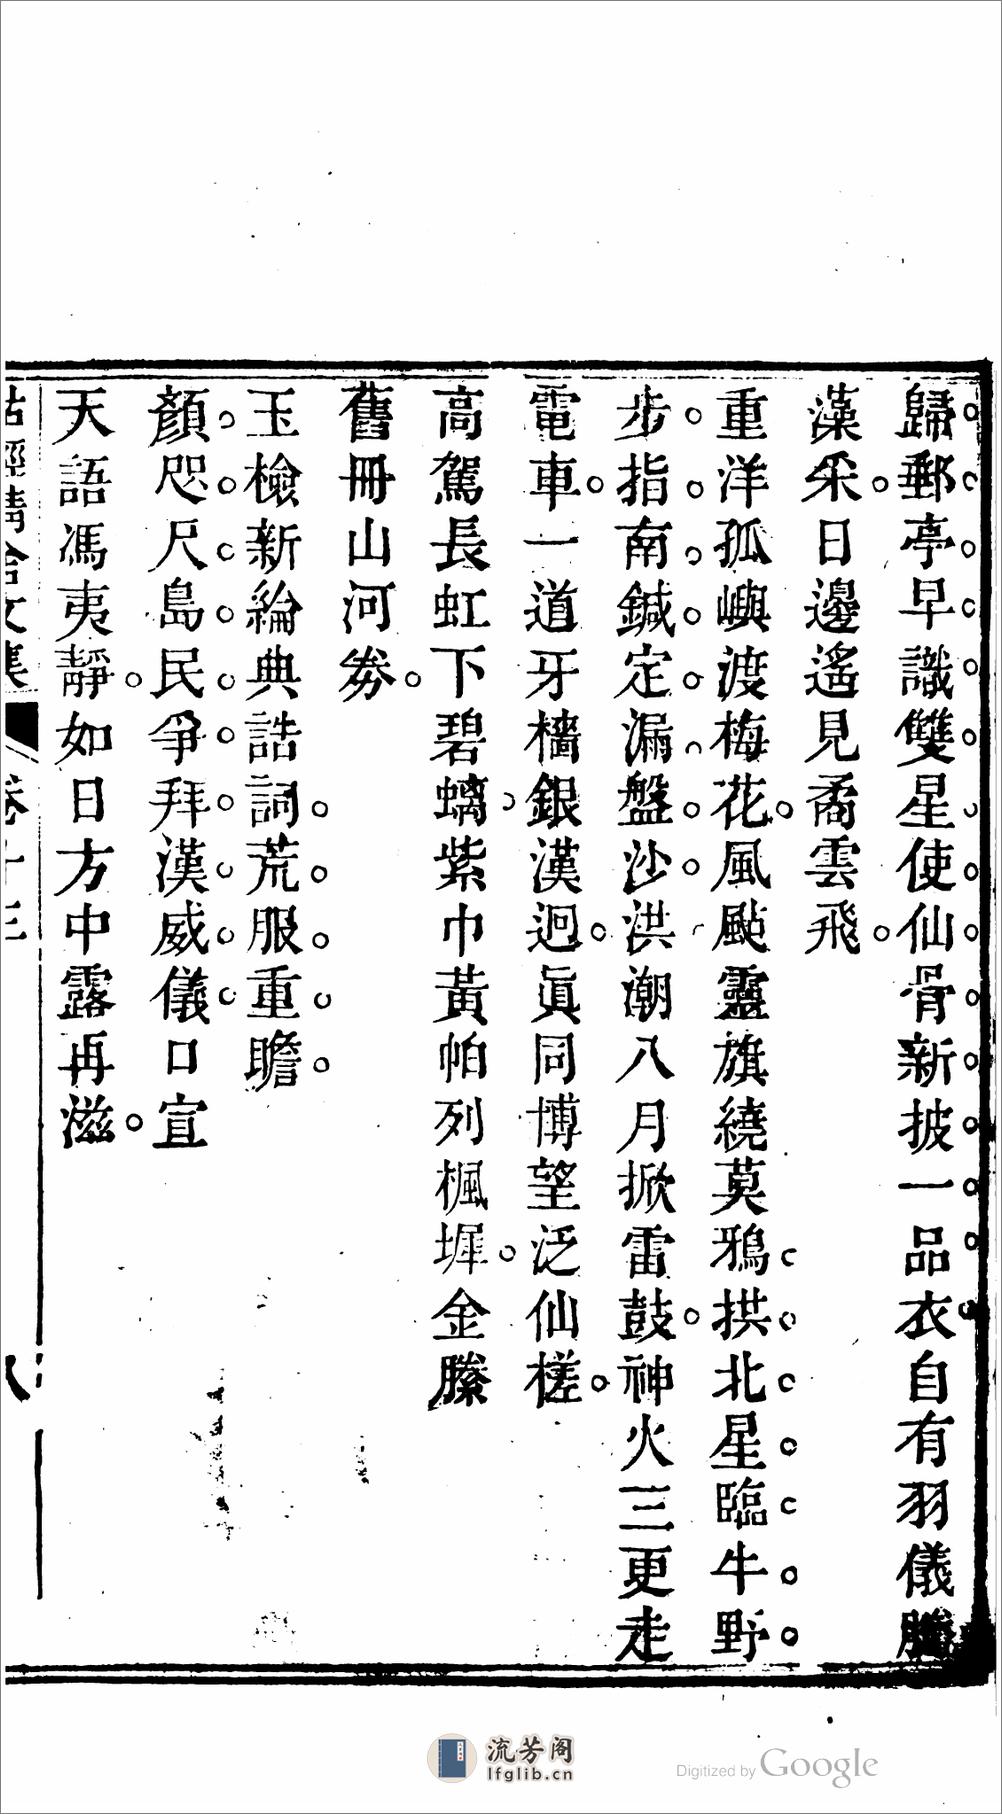 歸郵亭早識雙星使仙骨新披一品衣自有羽儀騰
藻采日邊遙見矞雲飛
重洋孤嶼渡梅花風颭靈旗繞莫鴉拱北星臨牛野
步指南鍼定漏盤沙洪潮八月掀雷鼓神火三更走
電車一道牙檣銀漢迥眞同博望泛仙槎
高駕長虹下碧螭紫巾黃帕列楓墀金縢
舊冊山河券
玉檢新綸典誥詞荒服重瞻
顏咫尺島民爭拜漢威儀口宣
天語馮夷靜如日方中露再滋
詁經精舍文集
卷十三
八
流芳阁
lfglib.cn
Digitized by Google